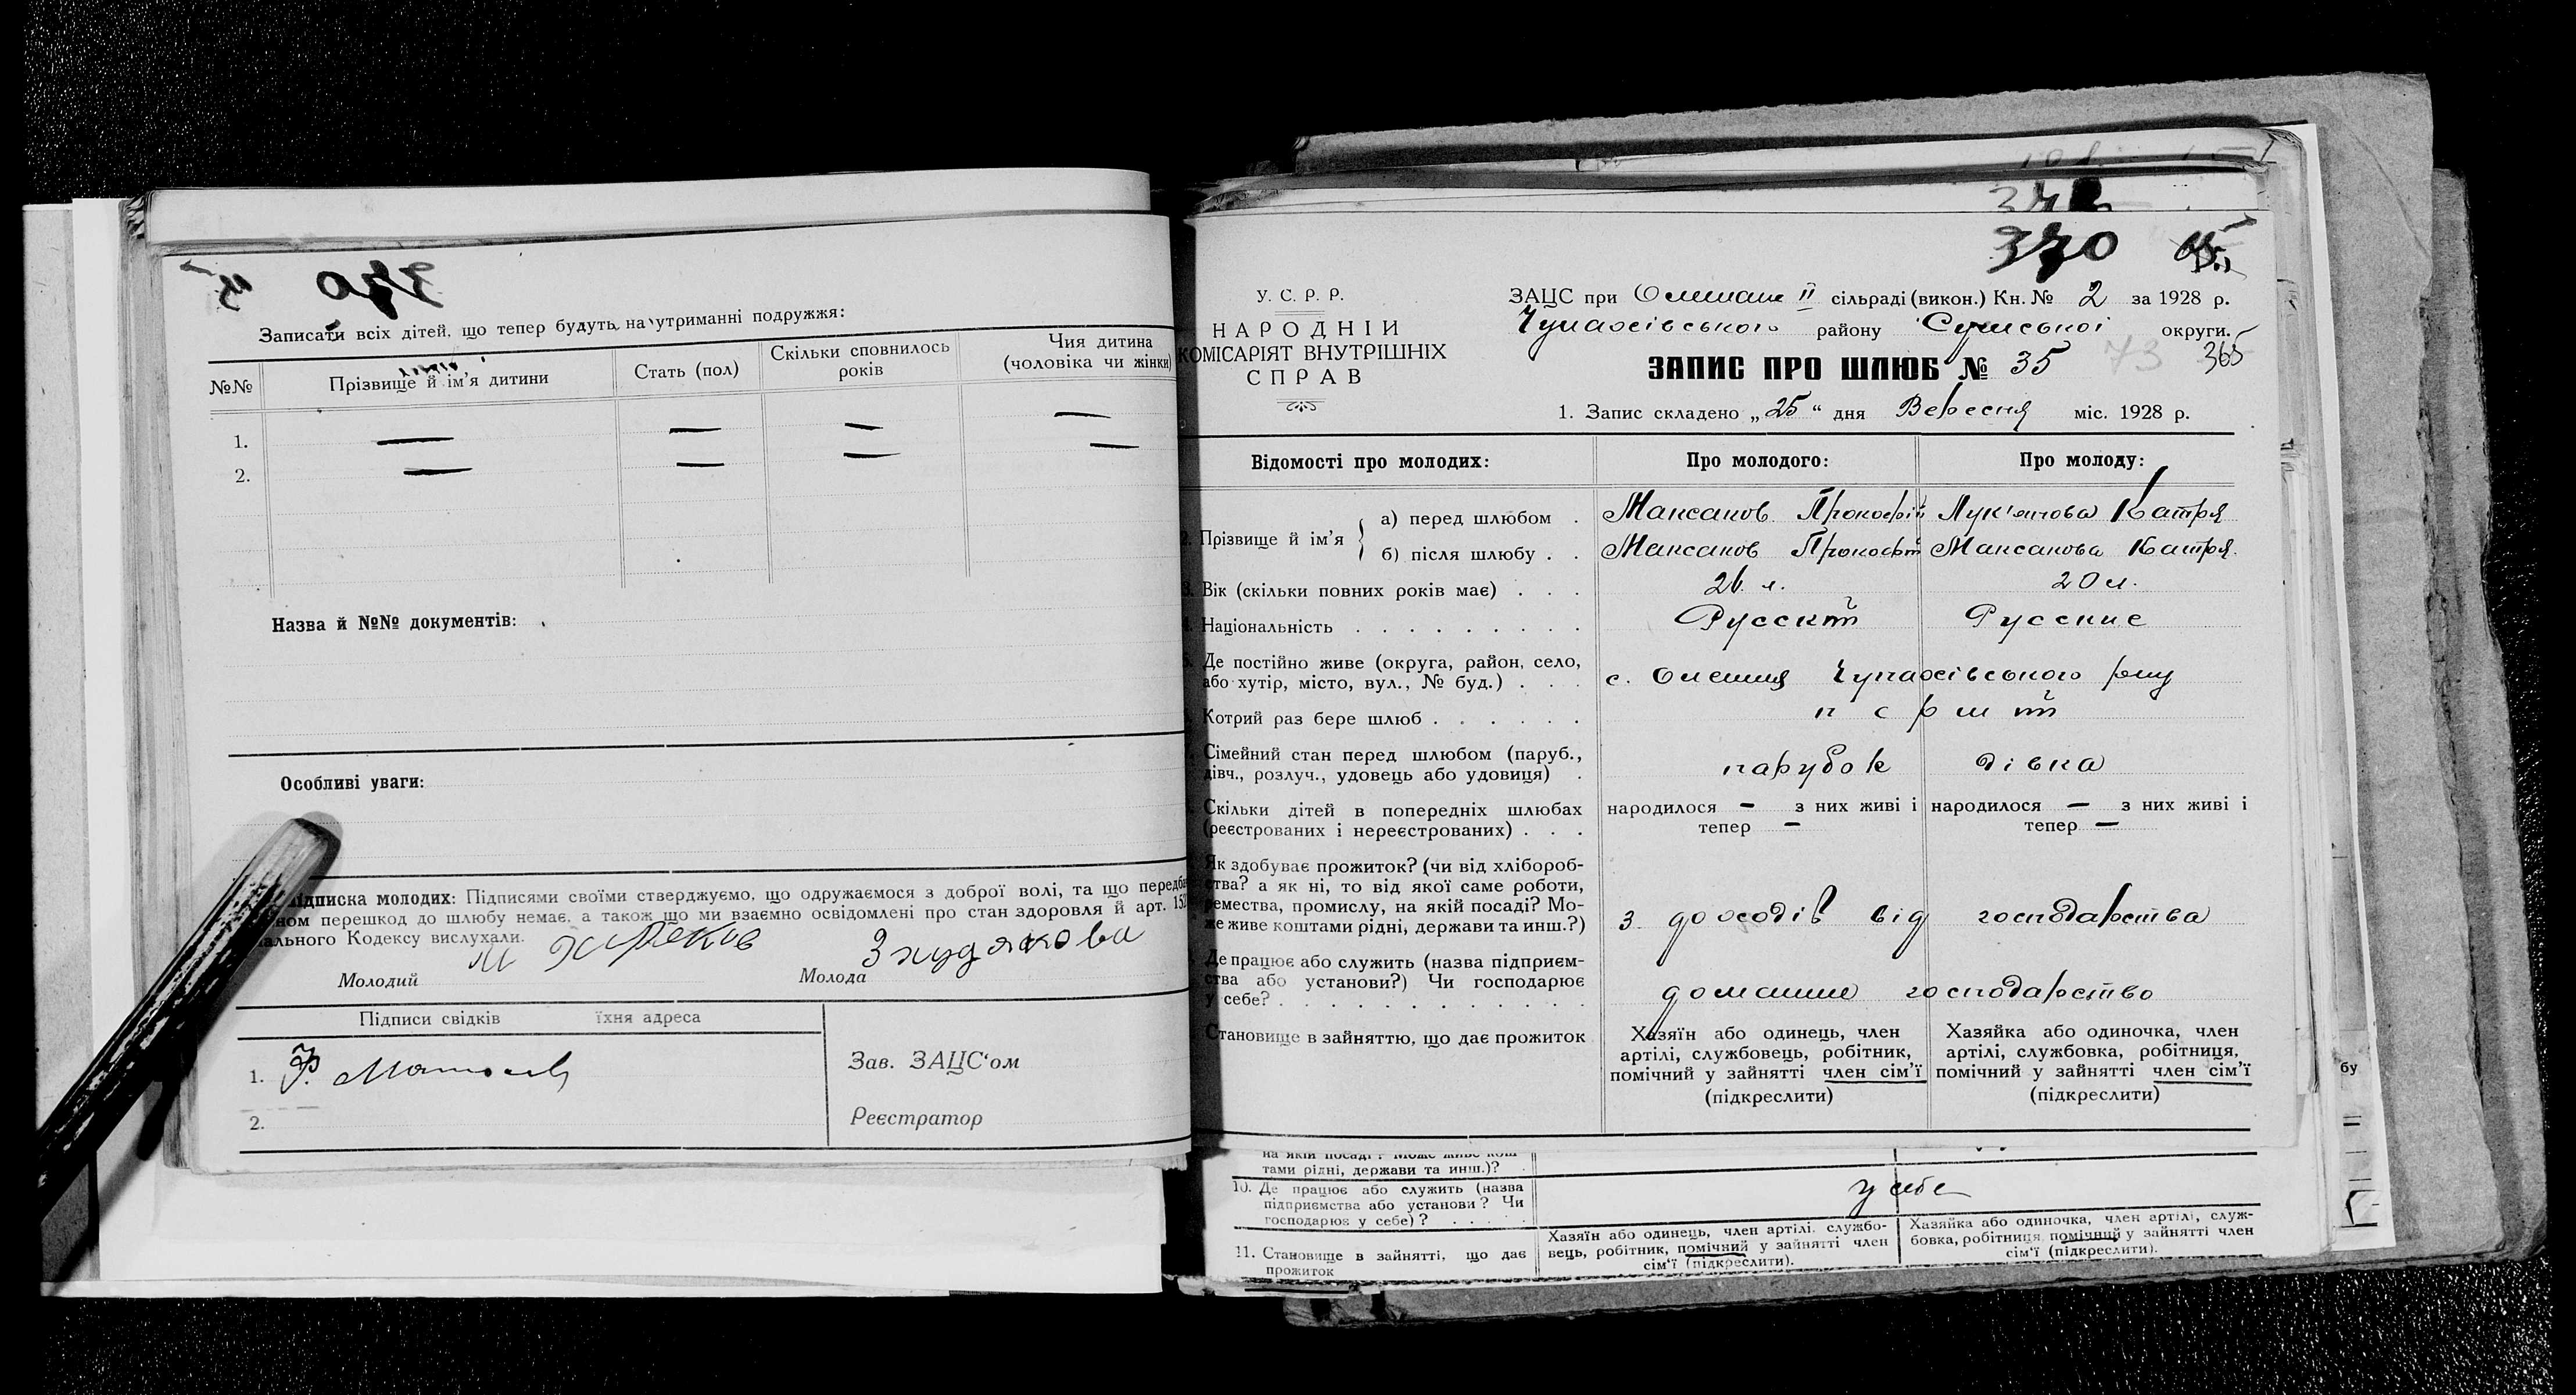 370
Записати всіх дітей, що тепер будуть на утриманні подружжя:
№№ Прізвище й ім’я дитини Стать (пол) Скільки сповнилось років Чия дитина (чоловіка чи жінки)
1. — — — —
2. — — — —
Назва й №№ документів:
Особливі уваги:
ідписка молодих: Підписями своїми стверджуємо, що одружаємося з доброї волі, та що передба
ном перешкод до шлюбу немає, а також що ми взаємно освідомлені про стан здоровля й арт. 152
ального Кодексу вислухали.
Молодий
Молода Зхудякова
Підписи свідків їхня адреса
1. Ф.
2.
Зав. ЗАЦС‘ом
Реєстратор
370
У. С. Р. Р.
НАРОДНІЙ
КОМІСАРІЯТ ВНУТРІШНІХ
СПРАВ
ЗАЦС при II сільраді (викон.) Кн. № 2 за 1928 р.
Чупахівського району Сумської округи.
365
73
ЗАПИС ПРО ШЛЮБ № 35
1. Запис складено „25“ дня Вересня міс. 1928 р.
Відомості про молодих: Про молодого: Про молоду:
Прізвище й ім’я
а) перед шлюбом . Максаков Прокофій Лук'янчова Катря
б) після шлюбу . . Максаков Прокофій Максакова Катря
Вік (скільки повних років має) . . . 26 л. 20 л.
Національність . . . . . . . . . Русский Русские
Де постійно живе (округа, район, село,
або хутір, місто, вул., № буд.) . . . с. Олешня Чупахівського р-ну
Котрий раз бере шлюб . . . . . . перший
Сімейний стан перед шлюбом (паруб.,
дівч., розлуч., удовець або удовиця) . парубок дівка
Скільки дітей в попередніх шлюбах народилося — з них живі і народилося — з них живі і
(реєстрованих і нереєстрованих) . . . тепер — тепер —
Як здобуває прожиток? (чи від хлібороб-
ства? а як ні, то від якої саме роботи,
ремества, промислу, на якій посаді? Мо-
же живе коштами рідні, держави та инш.?) з доходів від господарства
Де працює або служить (назва підприєм-
ства або установи?) Чи господарює
у себе? . . . . . . . . . . . домашнє господарство
Становище в зайняттю, що дає прожиток
Хазяїн або одинець, член
артілі, службовець, робітник,
помічний у зайнятті член сім’ї
(підкреслити)
Хазяйка або одиночка, член
артілі, службовка, робітниця,
помічний у зайнятті член сім’ї
(підкреслити)
тами рідні, держави та инш.)?
10. Де працює або служить (назва
підприємства або установи? Чи
господарює у себе)? . . . . . у себе
11. Становище в зайнятті, що дає
прожиток
Хазяїн або одинець, член артілі, службо-
вець, робітник, помічний у зайнятті член
сім‘ї (підкреслити).
Хазяйка або одиночка, член артілі, служ-
бовка, робітниця, помічний у зайнятті член
сім‘ї (підкреслити).
бу